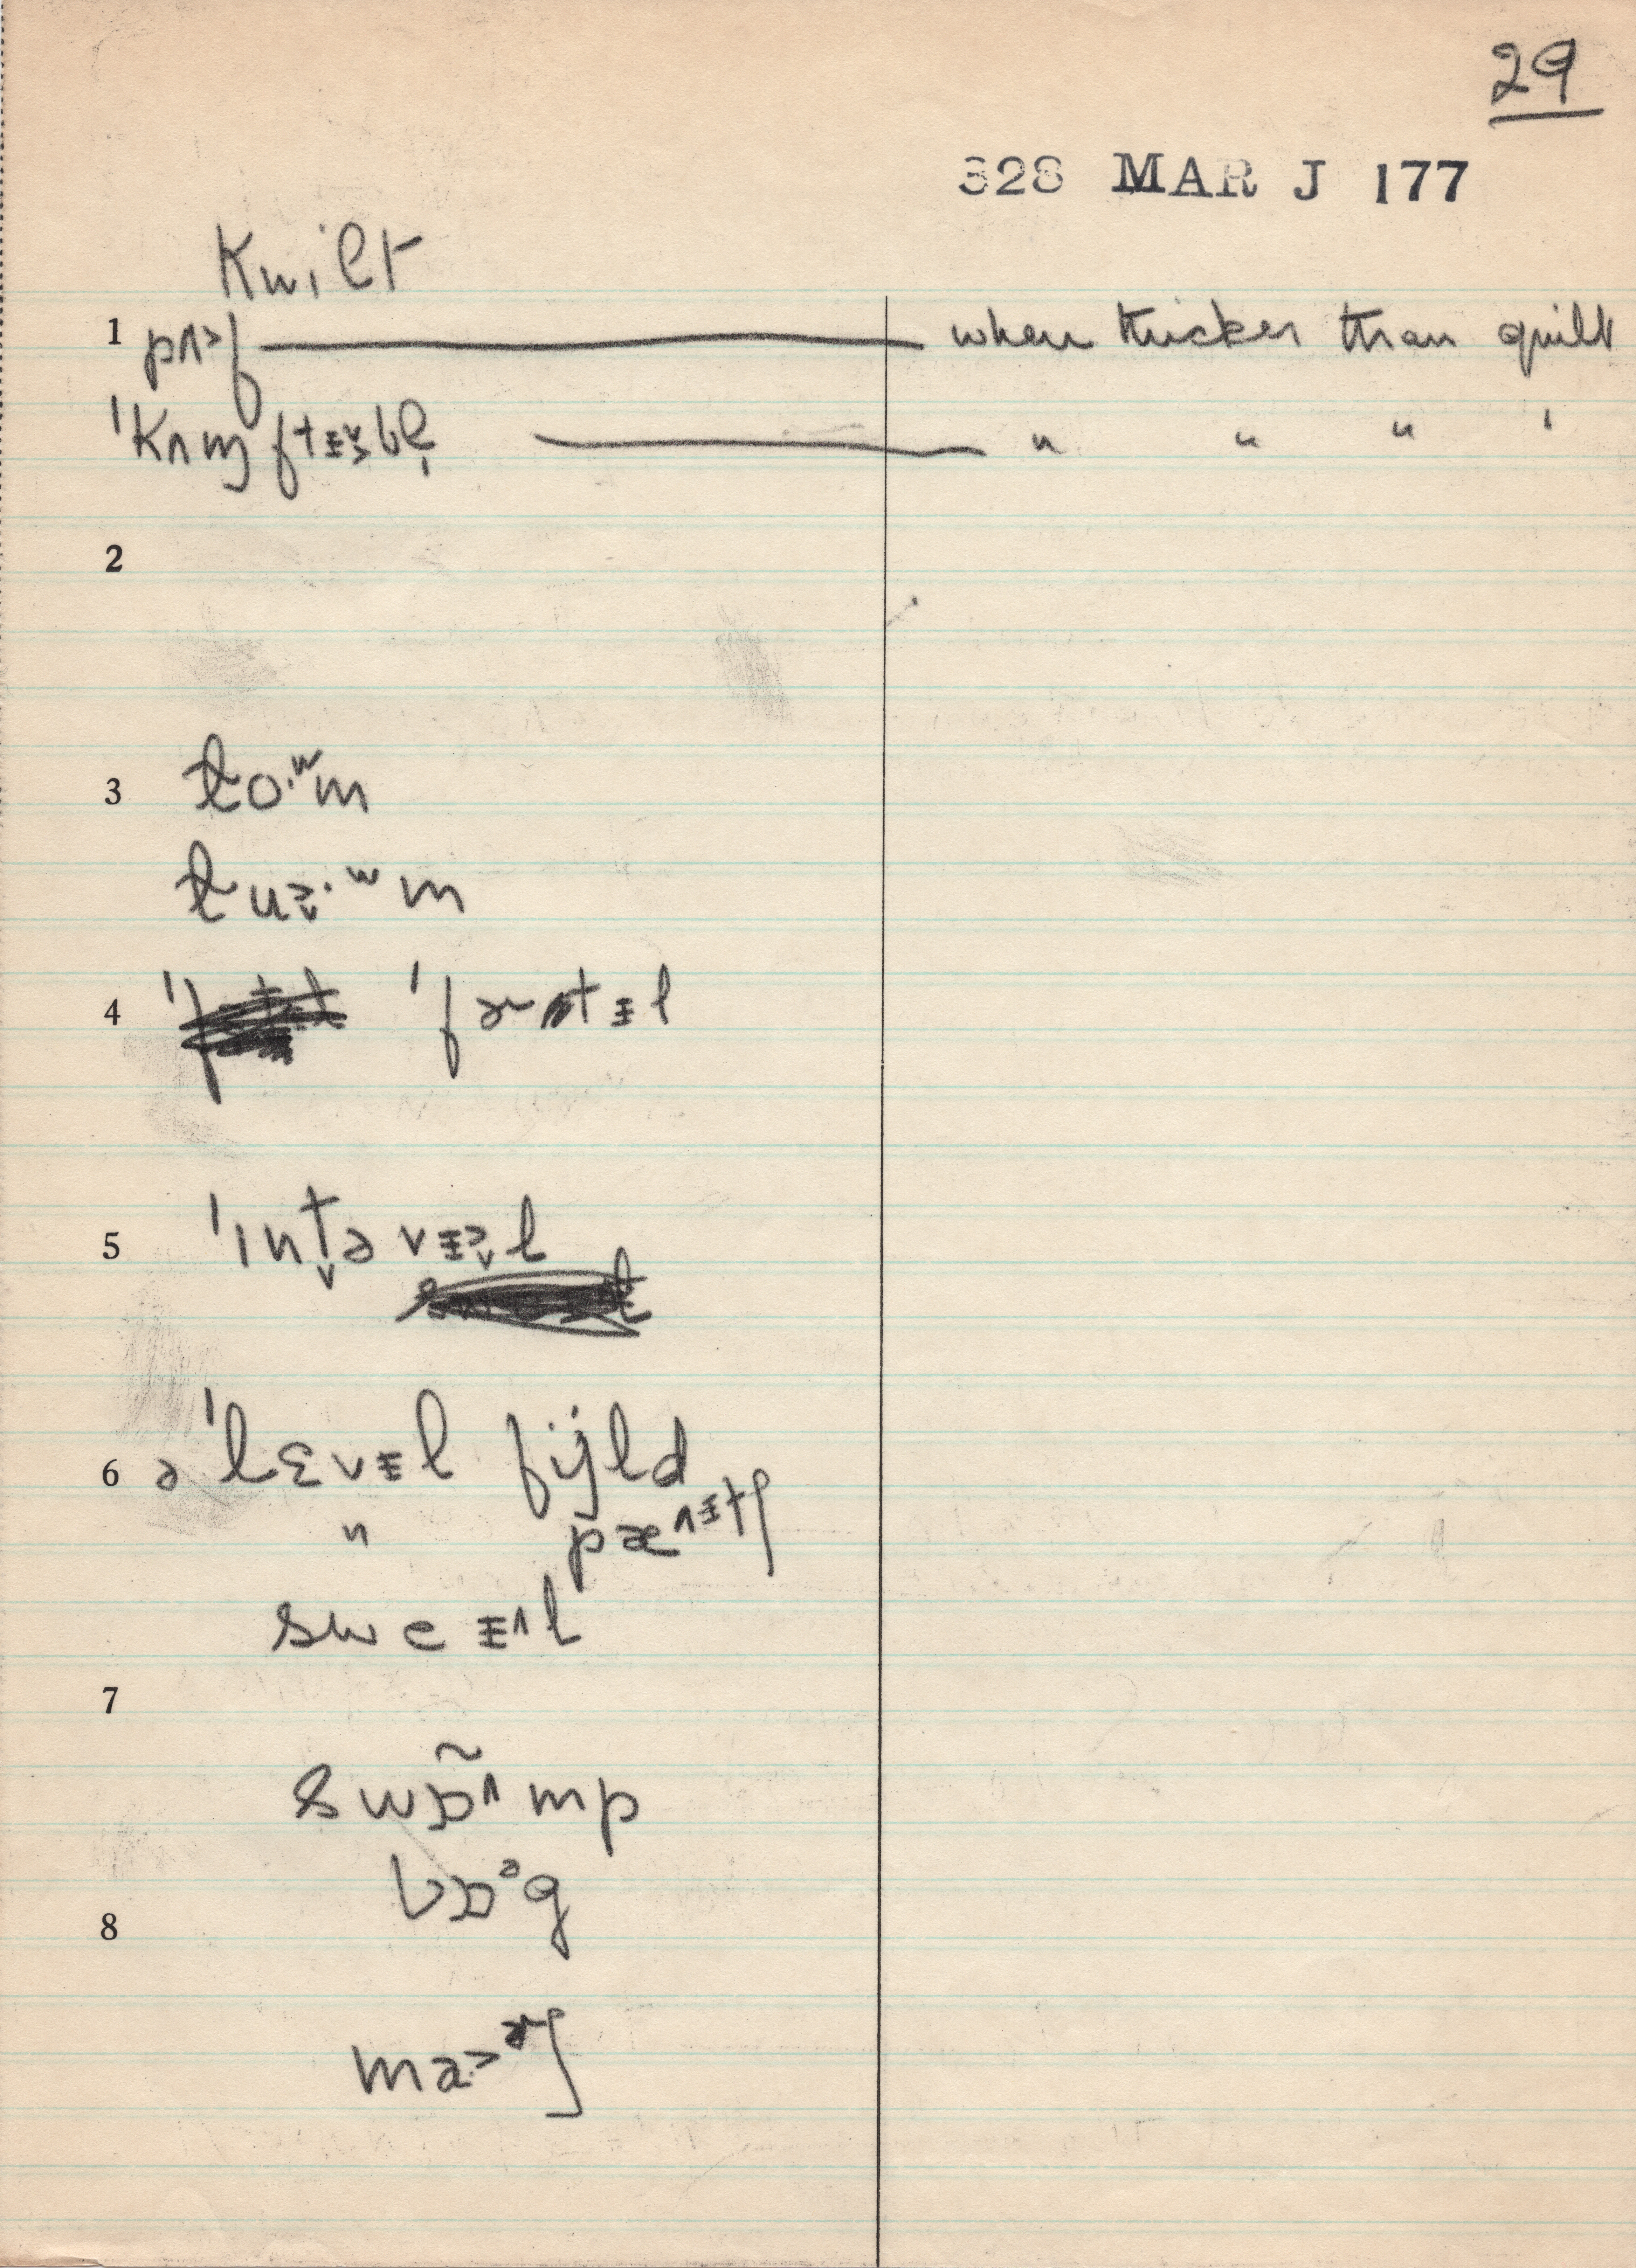 29
328 MAR J 177
Kwilt
1 pʌ˃f when thicker than quilt
ˈkʌmftɨ˅˃bl̩ " " " '
2
3 lo·ʷm
lu˃˅·ʷm
4 ˈfɚtɨl
5 ˈɪnt˅əvɨ˃˅l
6 əˈlɛvɨl fijld
" pæ^ɨtʃ
sweɨ^l
7
swɒ̃^mp
bɒᵊg
8
ma˃ɚʃ